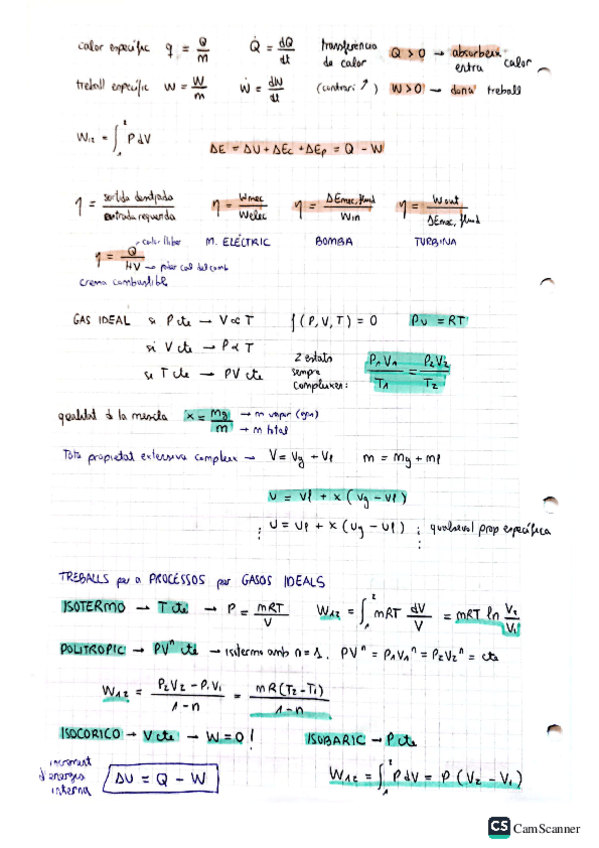 calor específic q = Q/m Q̇ = dQ/dt transferència de calor Q > 0 → absorbeix entra calor
treball específic w = W/m Ẇ = dW/dt (contrari ↗) W > 0 → dona treball
W₁₂ = ∫₁² P dV
ΔE = ΔU + ΔEc + ΔEp = Q - W
η = sortida desitjada/entrada requerida η = Wmec/Welec η = ΔEmec,fluid/Win η = Wout/ΔEmec,fluid
M. ELÈCTRIC BOMBA TURBINA
η = Q/HV → calor lliber → poder cal del comb
crema combustible
GAS IDEAL si P cte → V ∝ T f(P, V, T) = 0 Pv = RT
si V cte → P ∝ T
si T cte → PV cte
2 estats sempre compleixen: P₁V₁/T₁ = P₂V₂/T₂
qualitat d la mescla x = mg/m → m vapor (gas) → m total
Tota propietat extensiva compleix → V = Vg + Vl m = mg + ml
v = vl + x (vg - vl)
; u = ul + x (ug - ul) ; qualsevol prop específica
TREBALLS per a PROCESSOS per GASOS IDEALS
ISOTERMO → T cte → P = mRT/V W₁₂ = ∫₁² mRT dV/V = mRT ln V₂/V₁
POLITROPIC → PVⁿ cte → isotermo amb n = 1. PVⁿ = P₁V₁ⁿ = P₂V₂ⁿ = cte
W₁₂ = P₂V₂ - P₁V₁/1-n = mR(T₂-T₁)/1-n
ISOCORICO → V cte → W = 0! ISOBARIC → P cte
increment d'energia interna ΔU = Q - W W₁₂ = ∫₁² P dV = P (V₂ - V₁)
CS CamScanner